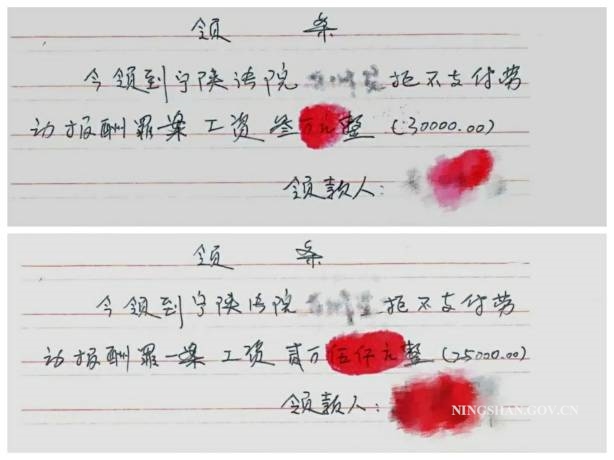 领 条
今领到宁陕法院 拒不支付劳
动报酬罪一案 工资 叁万元整 (30000.00)
领款人:
领 条
今领到宁陕法院 拒不支付劳
动报酬罪一案 工资 贰万伍仟元整 (25000.00)
领款人:
NINGSHAN.GOV.CN